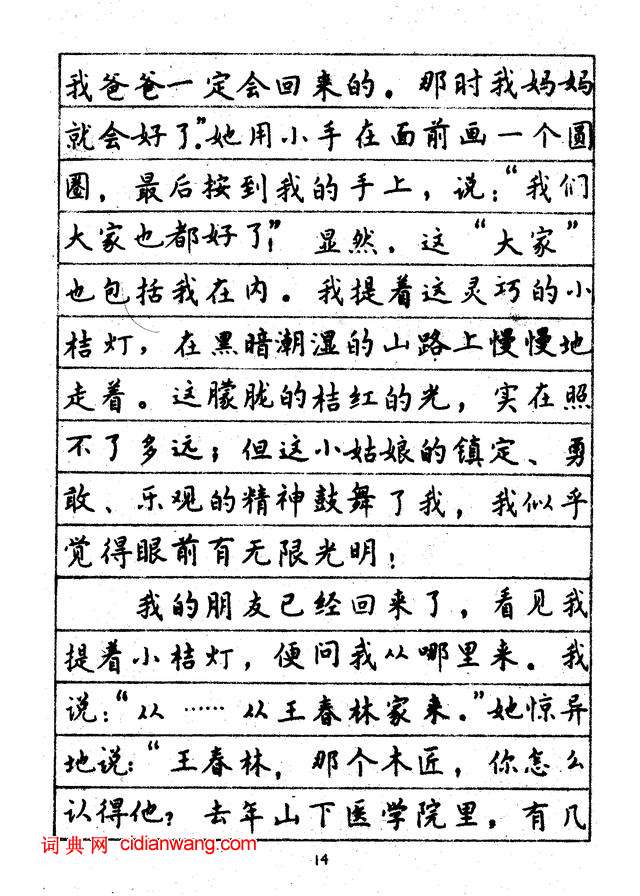 我爸爸一定会回来的。那时我妈妈
就会好了”她用小手在面前画一个圆
圈，最后按到我的手上，说：“我们
大家也都好了！”显然，这“大家”
也包括我在内。我提着这灵巧的小
桔灯，在黑暗潮湿的山路上慢慢地
走着。这朦胧的桔红的光，实在照
不了多远；但这小姑娘的镇定、勇
敢、乐观的精神鼓舞了我，我似乎
觉得眼前有无限光明！
我的朋友已经回来了，看见我
提着小桔灯，便问我从哪里来。我
说：“从……从王春林家来。”她惊异
地说：“王春林，那个木匠，你怎么
认得他？去年山下医学院里，有几
词典网 cidianwang.com
14